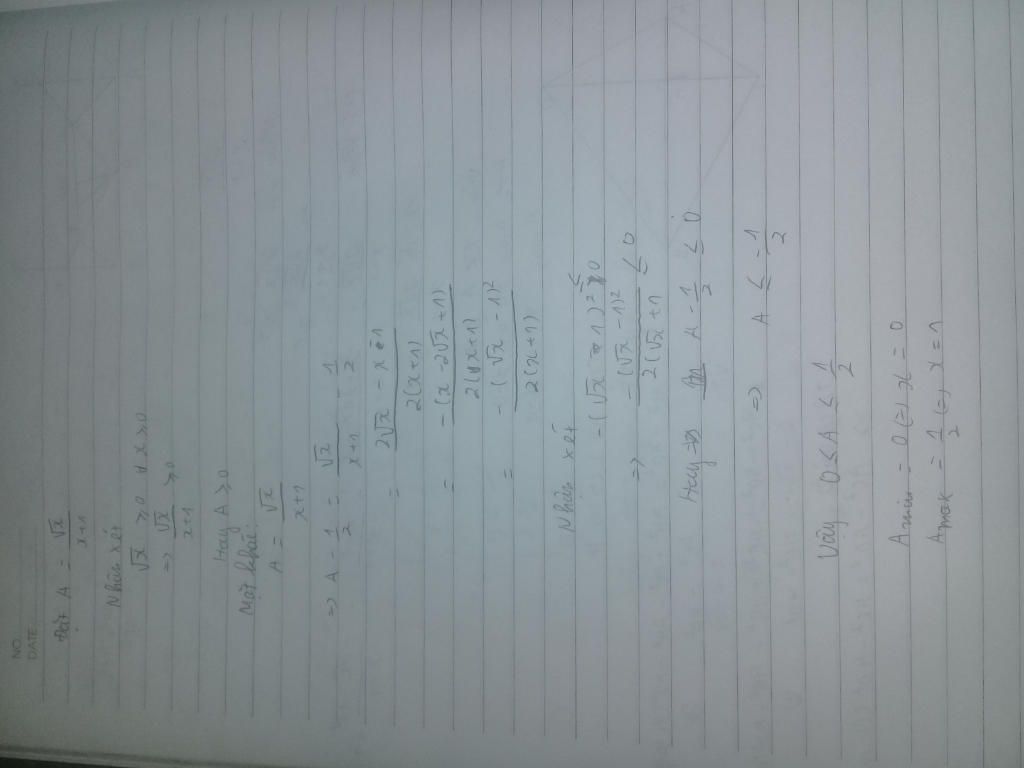 NO.
DATE
Đặt A = √x / x+1
Nhận xét
√x ≥ 0 ∀ x ≥ 0
=> √x / x+1 ≥ 0
Hay A ≥ 0
Mặt khác
A = √x / x+1
=> A - 1/2 = √x / x+1 - 1/2
= 2√x - x - 1 / 2(x+1)
= -(x - 2√x + 1) / 2(x+1)
= -(√x - 1)² / 2(x+1)
Nhận xét
-(√x - 1)² ≤ 0
=> -(√x - 1)² / 2(√x + 1 ≤ 0
Hay A - 1/2 ≤ 0
=> A ≤ 1/2
Vậy 0 ≤ A ≤ 1/2
Amin = 0 (=) x = 0
Amax = 1/2 (=) x = 1